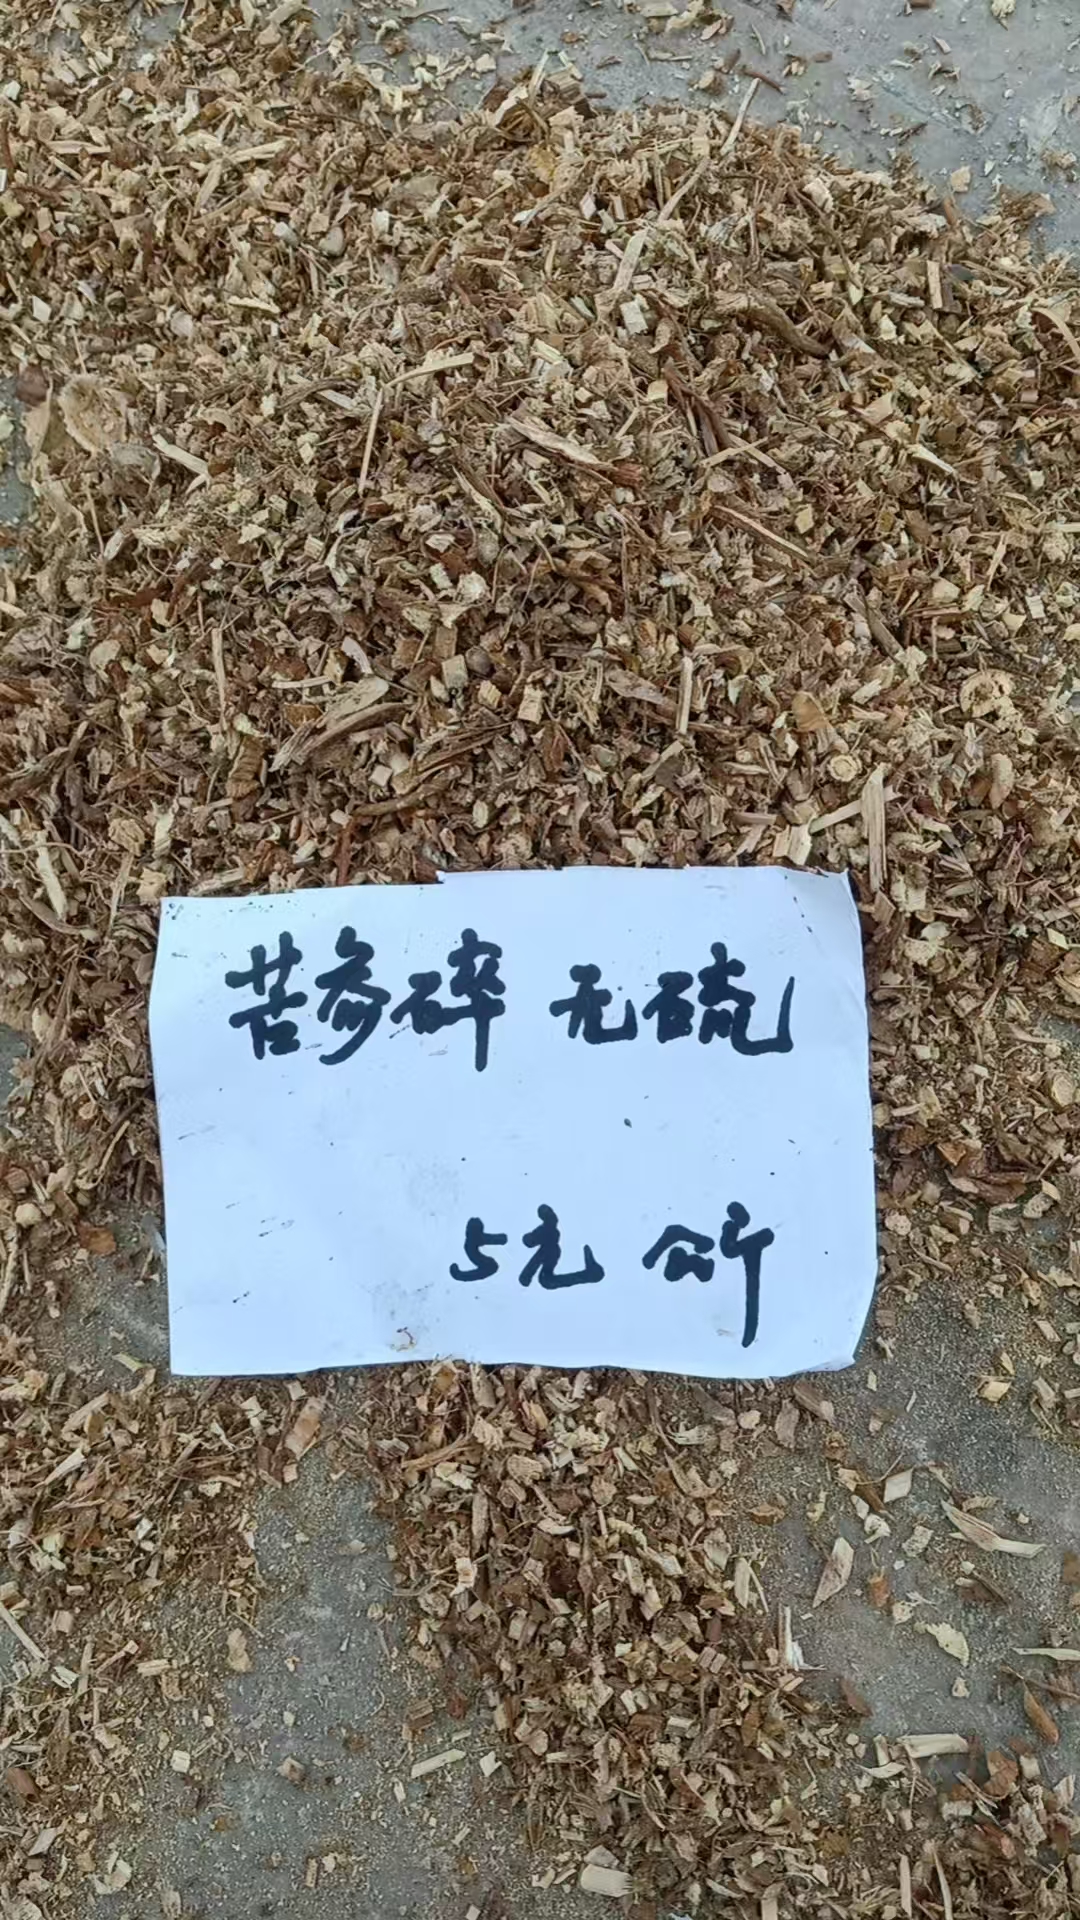 苦参碎 无硫
5元 公斤